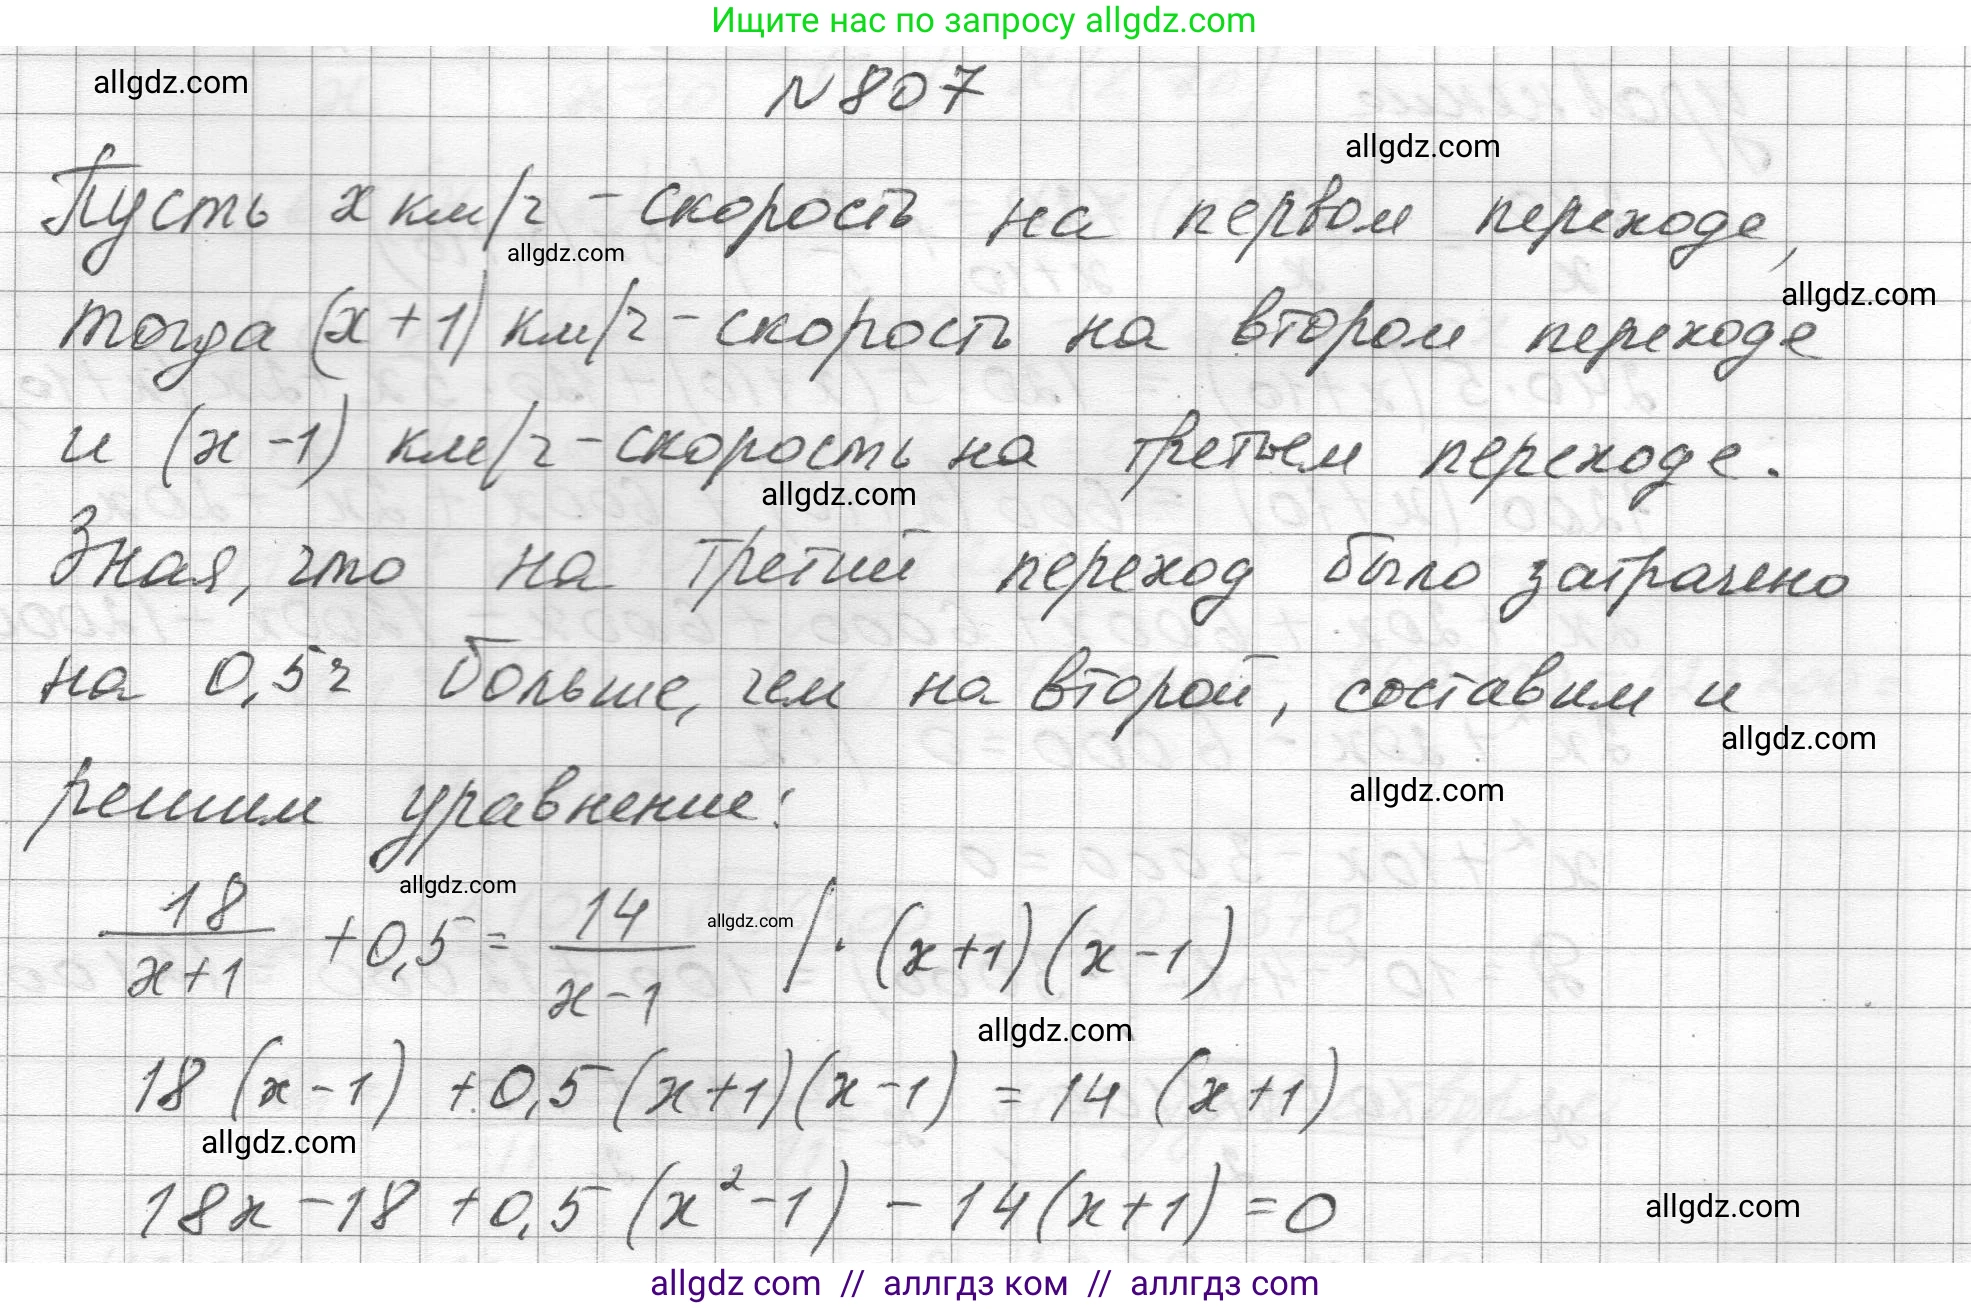 Ищите нас по запросу allgdz.com
allgdz.com
№807
allgdz.com
Пусть x км/ч - скорость на первом переходе,
allgdz.com
allgdz.com
тогда (x+1) км/ч - скорость на втором переходе
и (x-1) км/ч - скорость на третьем переходе.
allgdz.com
Зная, что на третий переход было затрачено
на 0,5 ч больше, чем на второй, составим и
allgdz.com
решим уравнение:
allgdz.com
allgdz.com
allgdz.com
18/(x+1) + 0,5 = 14/(x-1) | · (x+1)(x-1)
allgdz.com
18(x-1) + 0,5(x+1)(x-1) = 14(x+1)
allgdz.com
18x - 18 + 0,5(x²-1) - 14(x+1) = 0
allgdz.com
allgdz com // аллгдз ком // аллгдз com